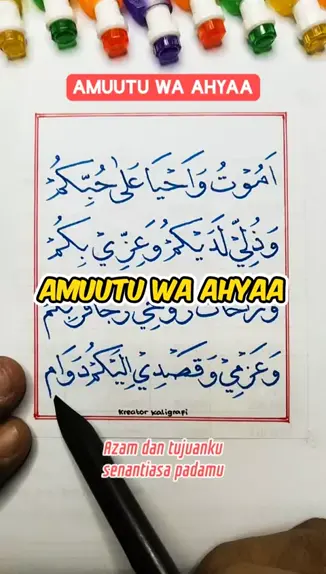 AMUUTU WA AHYAA
اَمُوْتُ وَاَحْيَا عَلٰى حُبِّكُمْ
وَذُلِّيْ لَدَيْكُمْ وَعِزِّيْ بِكُمْ
AMUUTU WA AHYAA
وَعَزْمِيْ وَقَصْدِيْ اِلَيْكُمْ دَوَامْ
Kreator Kaligrafi
Azam dan tujuanku
senantiasa padamu